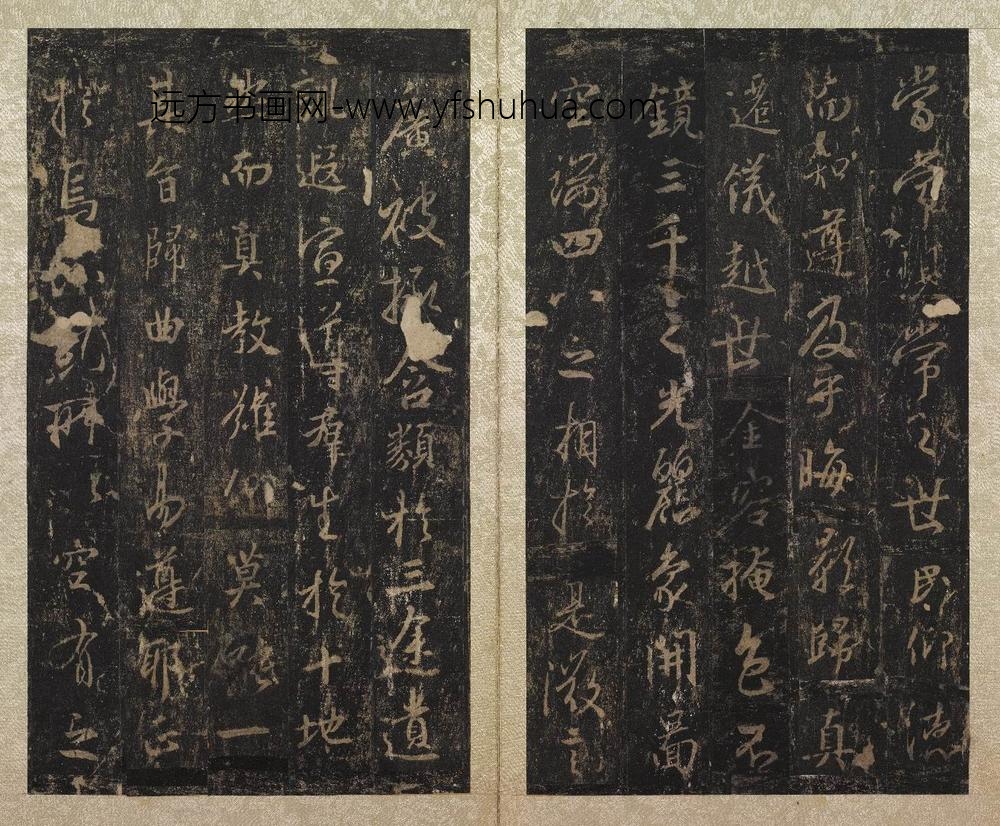 當常現常之世民仰德
而知遵及乎晦影歸真
遷儀越世金容掩色不
鏡三千之光麗象開啚
空端四八之相於是微言
廣被拯含類於三途遺
訓遐宣導羣生於十地
然而真教難仰莫能一
其旨歸曲學易遵耶正
於焉紛糾所以空有之
远方书画网-www.yfshuhua.com